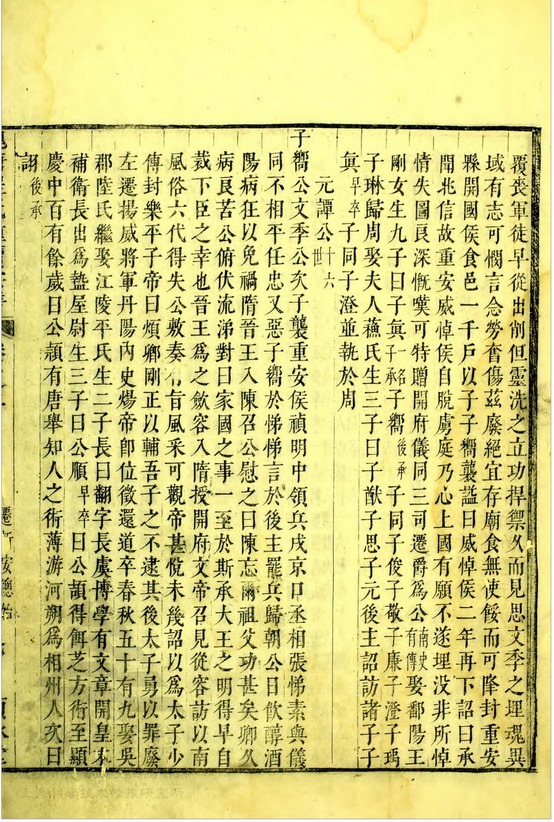 覆喪軍徒早從出削但靈洗之立功捍禦久而見思文季之埋魂異
域有志可憫言念勞舊傷茲廢絕宜存廟食無使餒而可降封重安
縣開國侯食邑一千戶以子子嚮襲諡曰威悼侯二年再下詔曰承
聞兆信故重安威悼侯自脫虜庭乃心上國有願不遂埋没非所悼
情失圖良深慨嘆可特贈開府儀同三司遷爵為公南史有傳娶鄱陽王
剛女生九子曰子㒹一名子承子嚮後承子同子俊子敬子廉子澄子瑀
子琳歸周娶夫人蘓氏生三子曰子猷子思子元後主詔訪諸子子
㒹早卒子同子澄並執於周
元譚公廿十六
子嚮公文季公次子襲重安侯禎明中領兵戍京口丞相張悌素與儀
同不相平任忠又惡子嚮於悌悌言於後主罷兵歸朝公日飲醇酒
陽病狂以免禍隋晉王入陳召公慰之曰陳忘爾祖父功甚矣卿久
病良苦公俯伏流涕對曰家國之事一至於斯承大王之明得早自
裁下臣之幸也晉王為之斂容入隋授開府文帝召見從容訪以南
風俗六代得失公敷奏有旨風采可觀帝甚悅未幾詔以為太子少
傅封樂平子帝曰煩卿剛正以輔吾子之不逮其後太子勇以罪廢
左遷揚威將軍丹陽內史煬帝卽位徵還道卒春秋五十有九娶吳
郡陸氏繼娶江陵平氏生二子長曰翻字長虞博學有文章開皇末
補衛長出為盩屋尉生三子曰公順早卒曰公頡得餌芝方術至顯
慶中百有餘歲曰公頴有唐舉知人之術薄游河朔為相州人次曰
詡後承